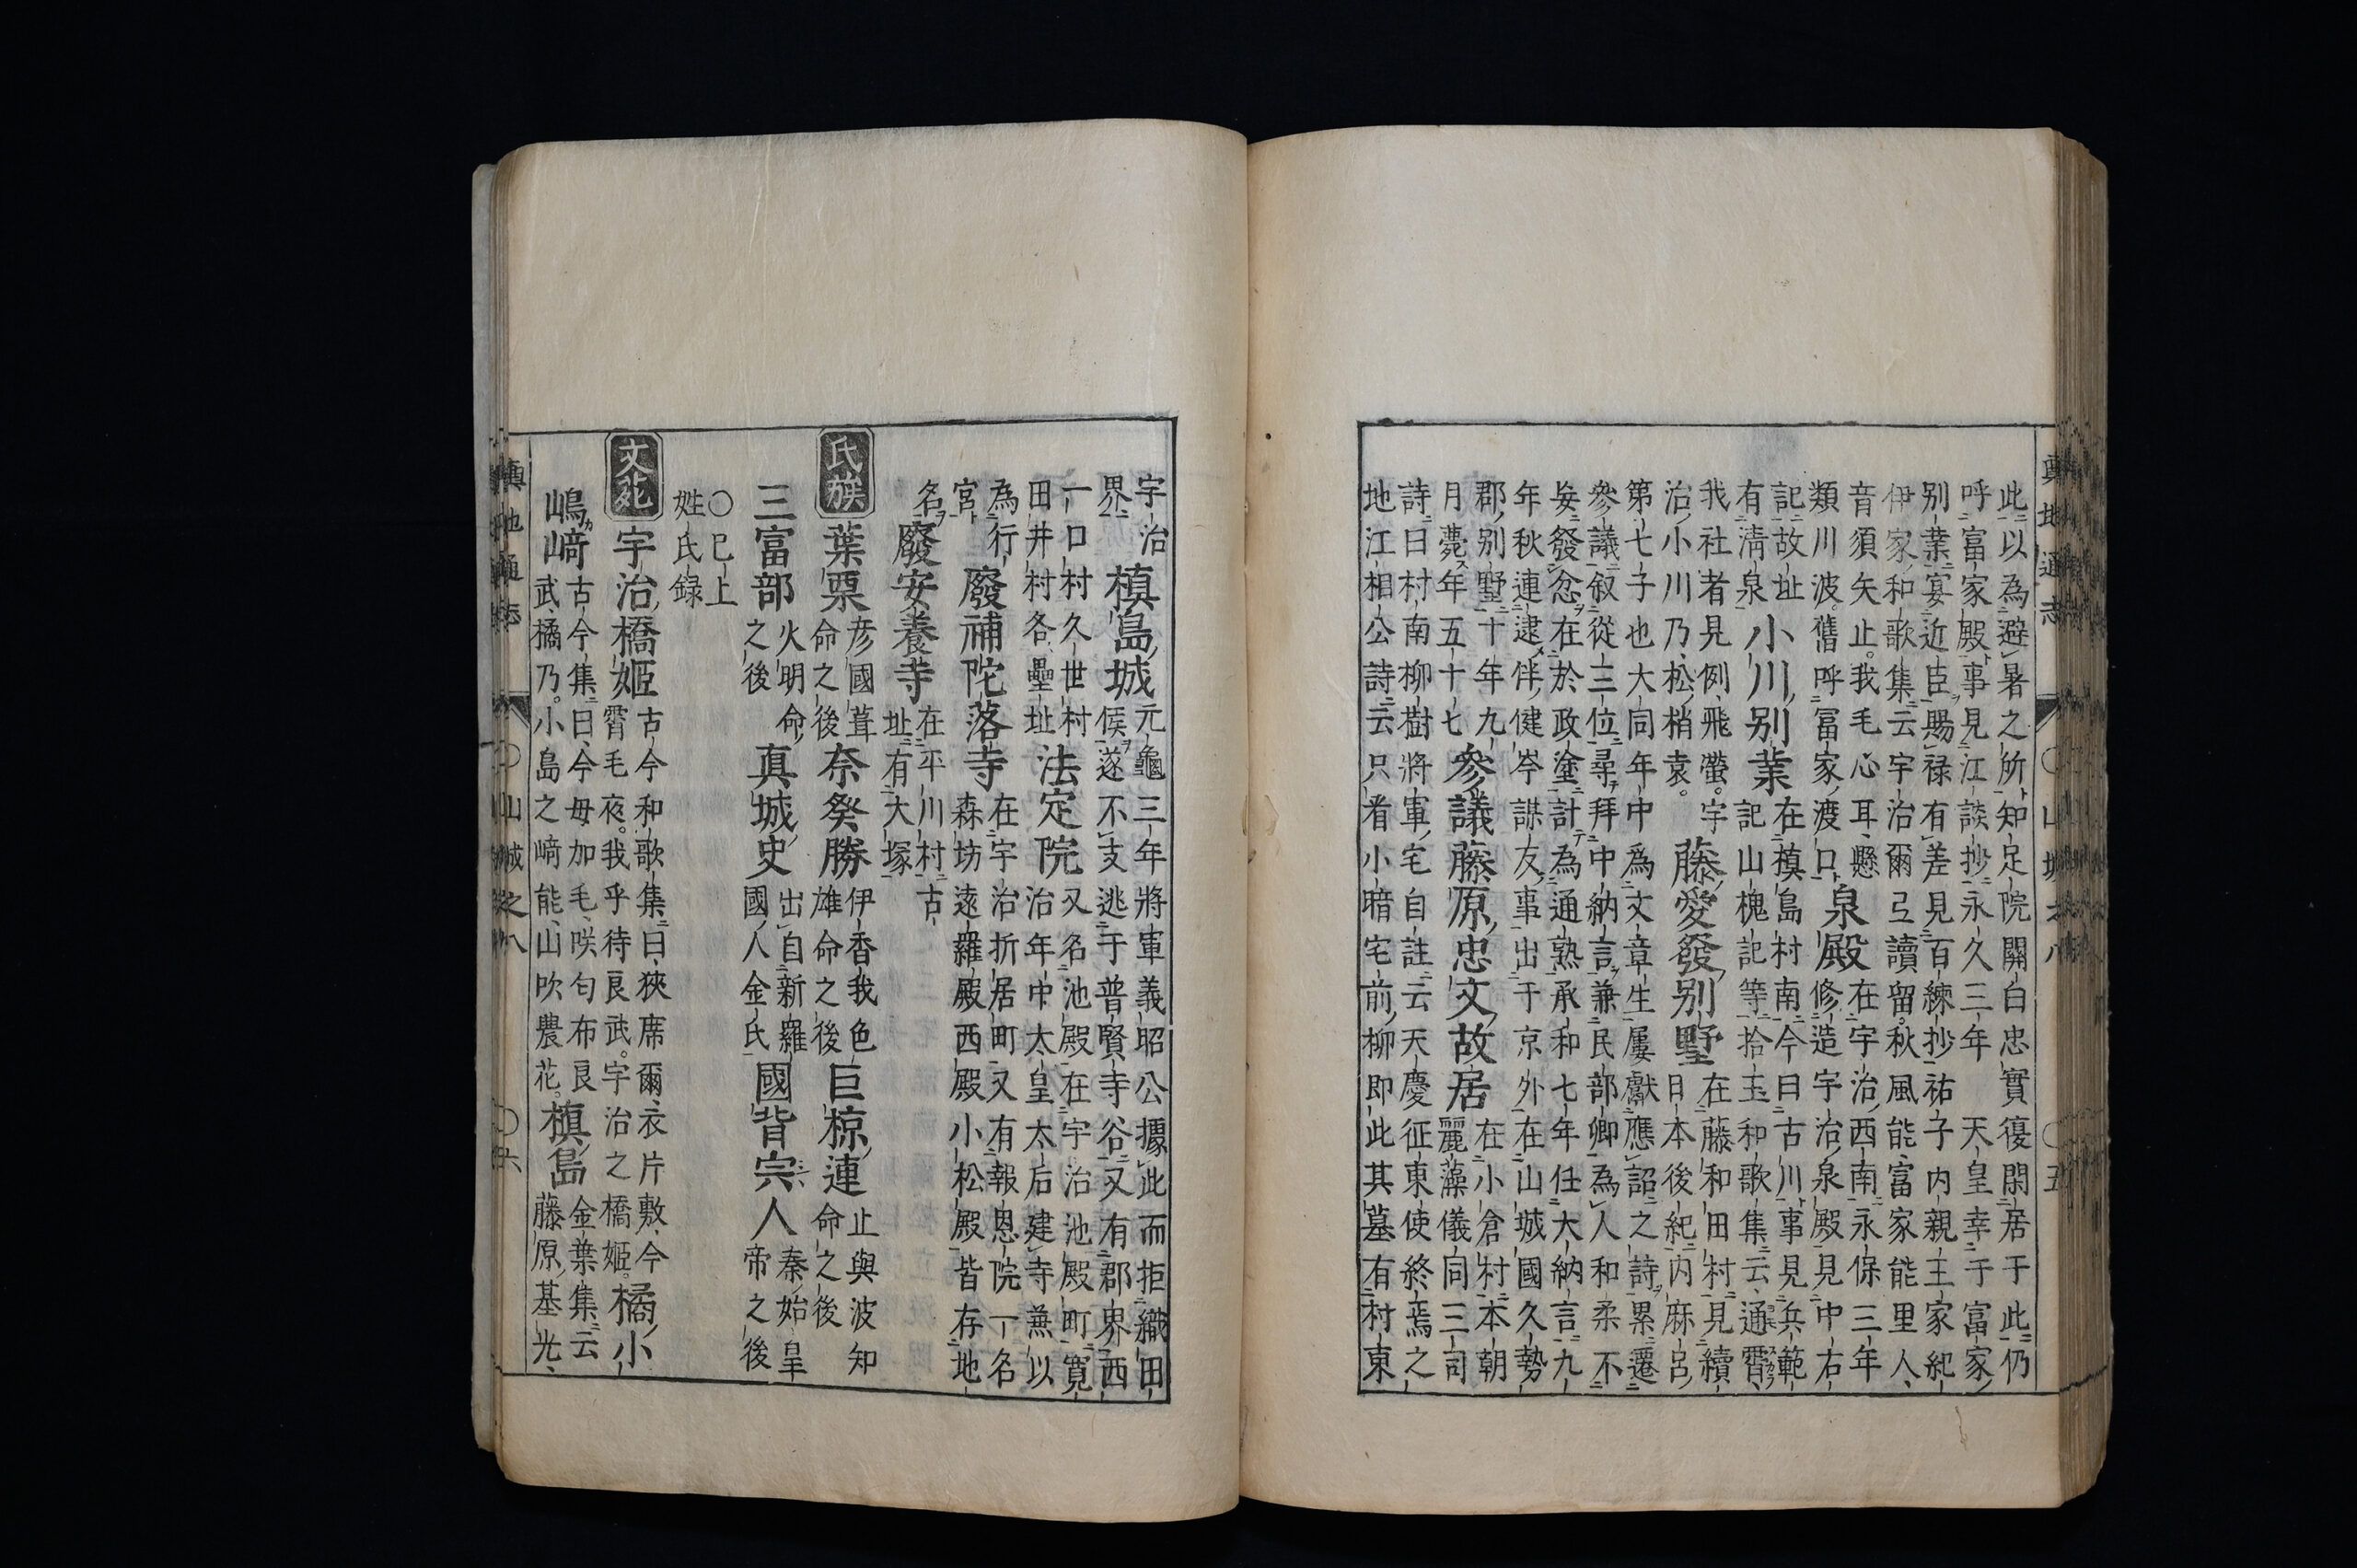 此以為避暑之所知足院關白忠實復閑居于此仍
呼富家殿事見江談抄永久三年 天皇幸于富家
別業宴近臣賜祿有差見百練抄祐子内親王家紀
伊家和歌集云宇治爾弖讀留。秋風能富家能里人
音須矢止。我毛心耳懸
類川波。舊呼冨家渡口
泉殿
在宇治西南永保三年
修造宇治泉殿見中右
記故址
有清泉
小川別業
在槙島村南今曰古川事見兵範
記山槐記等拾玉和歌集云通霄
我社者見例飛螢。宇
治小川乃松梢袁。
藤愛發別墅
在藤和田村見續
日本後紀内麻呂
第七子也大同年中為文章生屢獻應詔之詩累遷
參議叙從三位尋拜中納言兼民部卿為人和柔不
妄發忿在於政塗計為通熟承和七年任大納言九
年秋連逮伴健岑謀友事出于京外在山城國久勢
郡別墅十年九
月薨年五十七
參議藤原忠文故居
在小倉村本朝
麗藻儀同三司
詩曰村南柳樹將軍宅自註云天慶征東使終焉之
地江相公詩云只看小暗宅前柳即此其墓有村東
宇治
界
槙島城
元龜三年將軍義昭公據此而拒織田
候遂不支逃于普賢寺谷又有郡界西
一口村久世村
田井村各壘址
法定院
又名池殿在宇治池殿町寬
治年中太皇太后建寺無以
為行
宮
廢補陀落寺
在宇治折居町又有報恩院一名
森坊遠羅殿西殿小松殿皆存地
名
廢安養寺
在平川村古
址有大塚
氏族
葉栗
彦國葺
命之後
奈癸勝
伊香我色
雄命之後
巨椋連
止與波知
命之後
三富部
火明命
之後
真城史
出自新羅
國人金氏
國背宗人
秦始皇
帝之後
〇已上
姓氏録
文苑
宇治橋姬
古今和歌集曰狹席爾衣片敷今
霄毛夜。我乎待良武。宇治之橋姬。
橘小
嶋﨑
古今集曰今毋加毛咲匂布良
武橘乃。小島之﨑能山吹農花。
槙島
金葉集云
藤原基光
〇山城之八
〇五